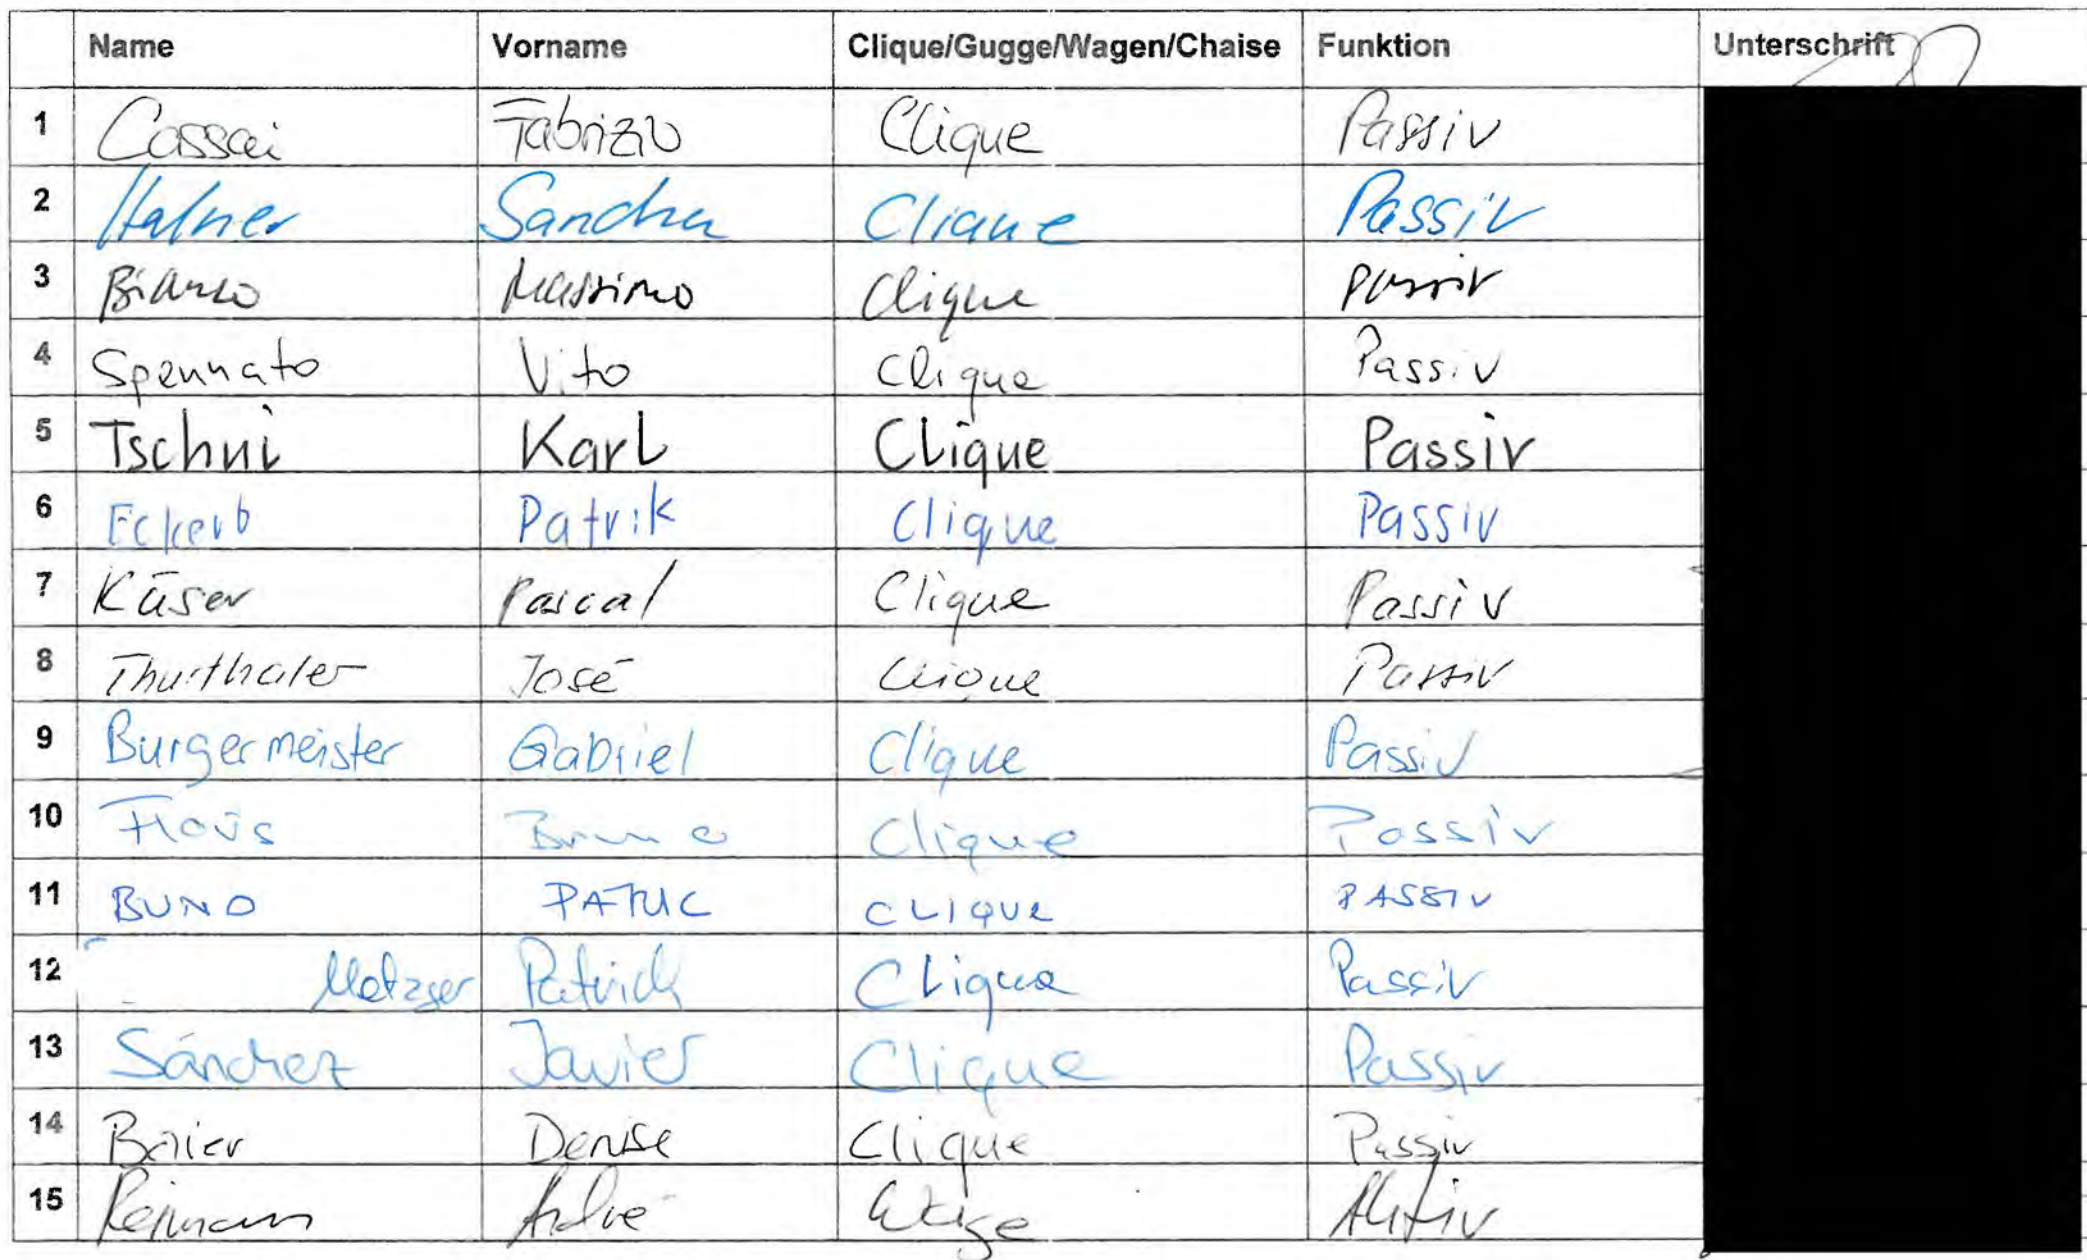 Name Vorname Clique/Gugge/Wagen/Chaise Funktion Unterschrift
1 Cassai Fabrizio Clique Passiv
2 Hafner Sandra Clique Passiv
3 Bianco Massimo Clique passiv
4 Spennato Vito Clique Passiv
5 Tschui Karl Clique Passiv
6 Eckert Patrik Clique Passiv
7 Käser Pascal Clique Passiv
8 Thurthaler José Clique Passiv
9 Burgermeister Gabriel Clique Passiv
10 Bruno Clique Passiv
11 BUNO PATRIC CLIQUE PASSIV
12 Metzger Patrick Clique Passiv
13 Sánchez Javier Clique Passiv
14 Baier Denise Clique Passiv
15 Reimann André Aktiv